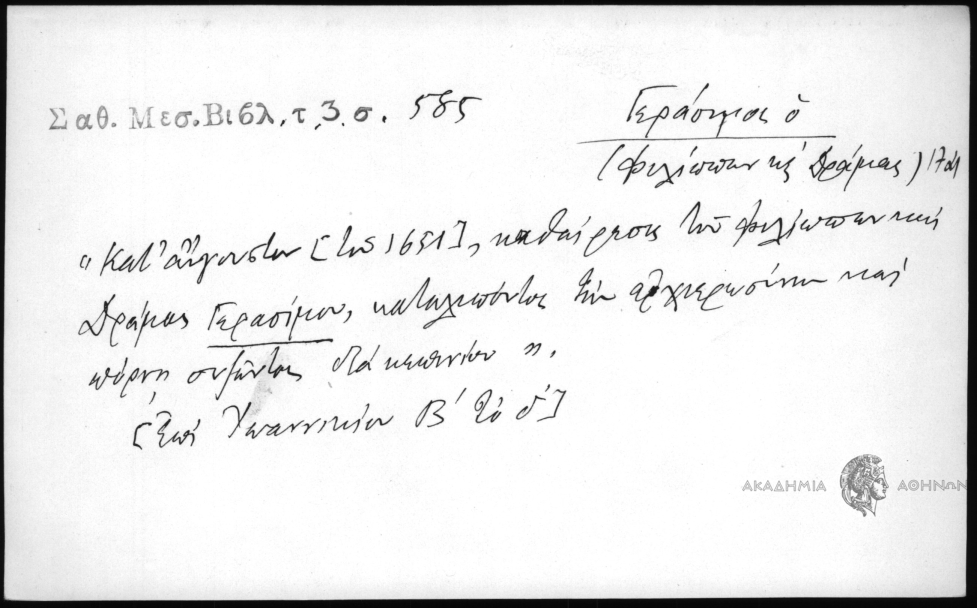 Σαθ. Μεσ. Βιβλ. τ. 3. σ. 585
Γεράσιμος ὁ
(Φιλίππων κ Δράμας) 17
"Κατ' αὔγουστον [τοῦ 1651], καθαίρεσις τοῦ Φιλίππων καὶ
Δράμας Γερασίμου, καταλιπόντος τὴν ἀρχιερωσύνην καὶ
πόρνῃ συζῶντος διὰ
[Ἐπὶ Ἰωαννικίου Β' τὸ δ']
ΑΚΑΔΗΜΙΑ ΑΘΗΝΩΝ